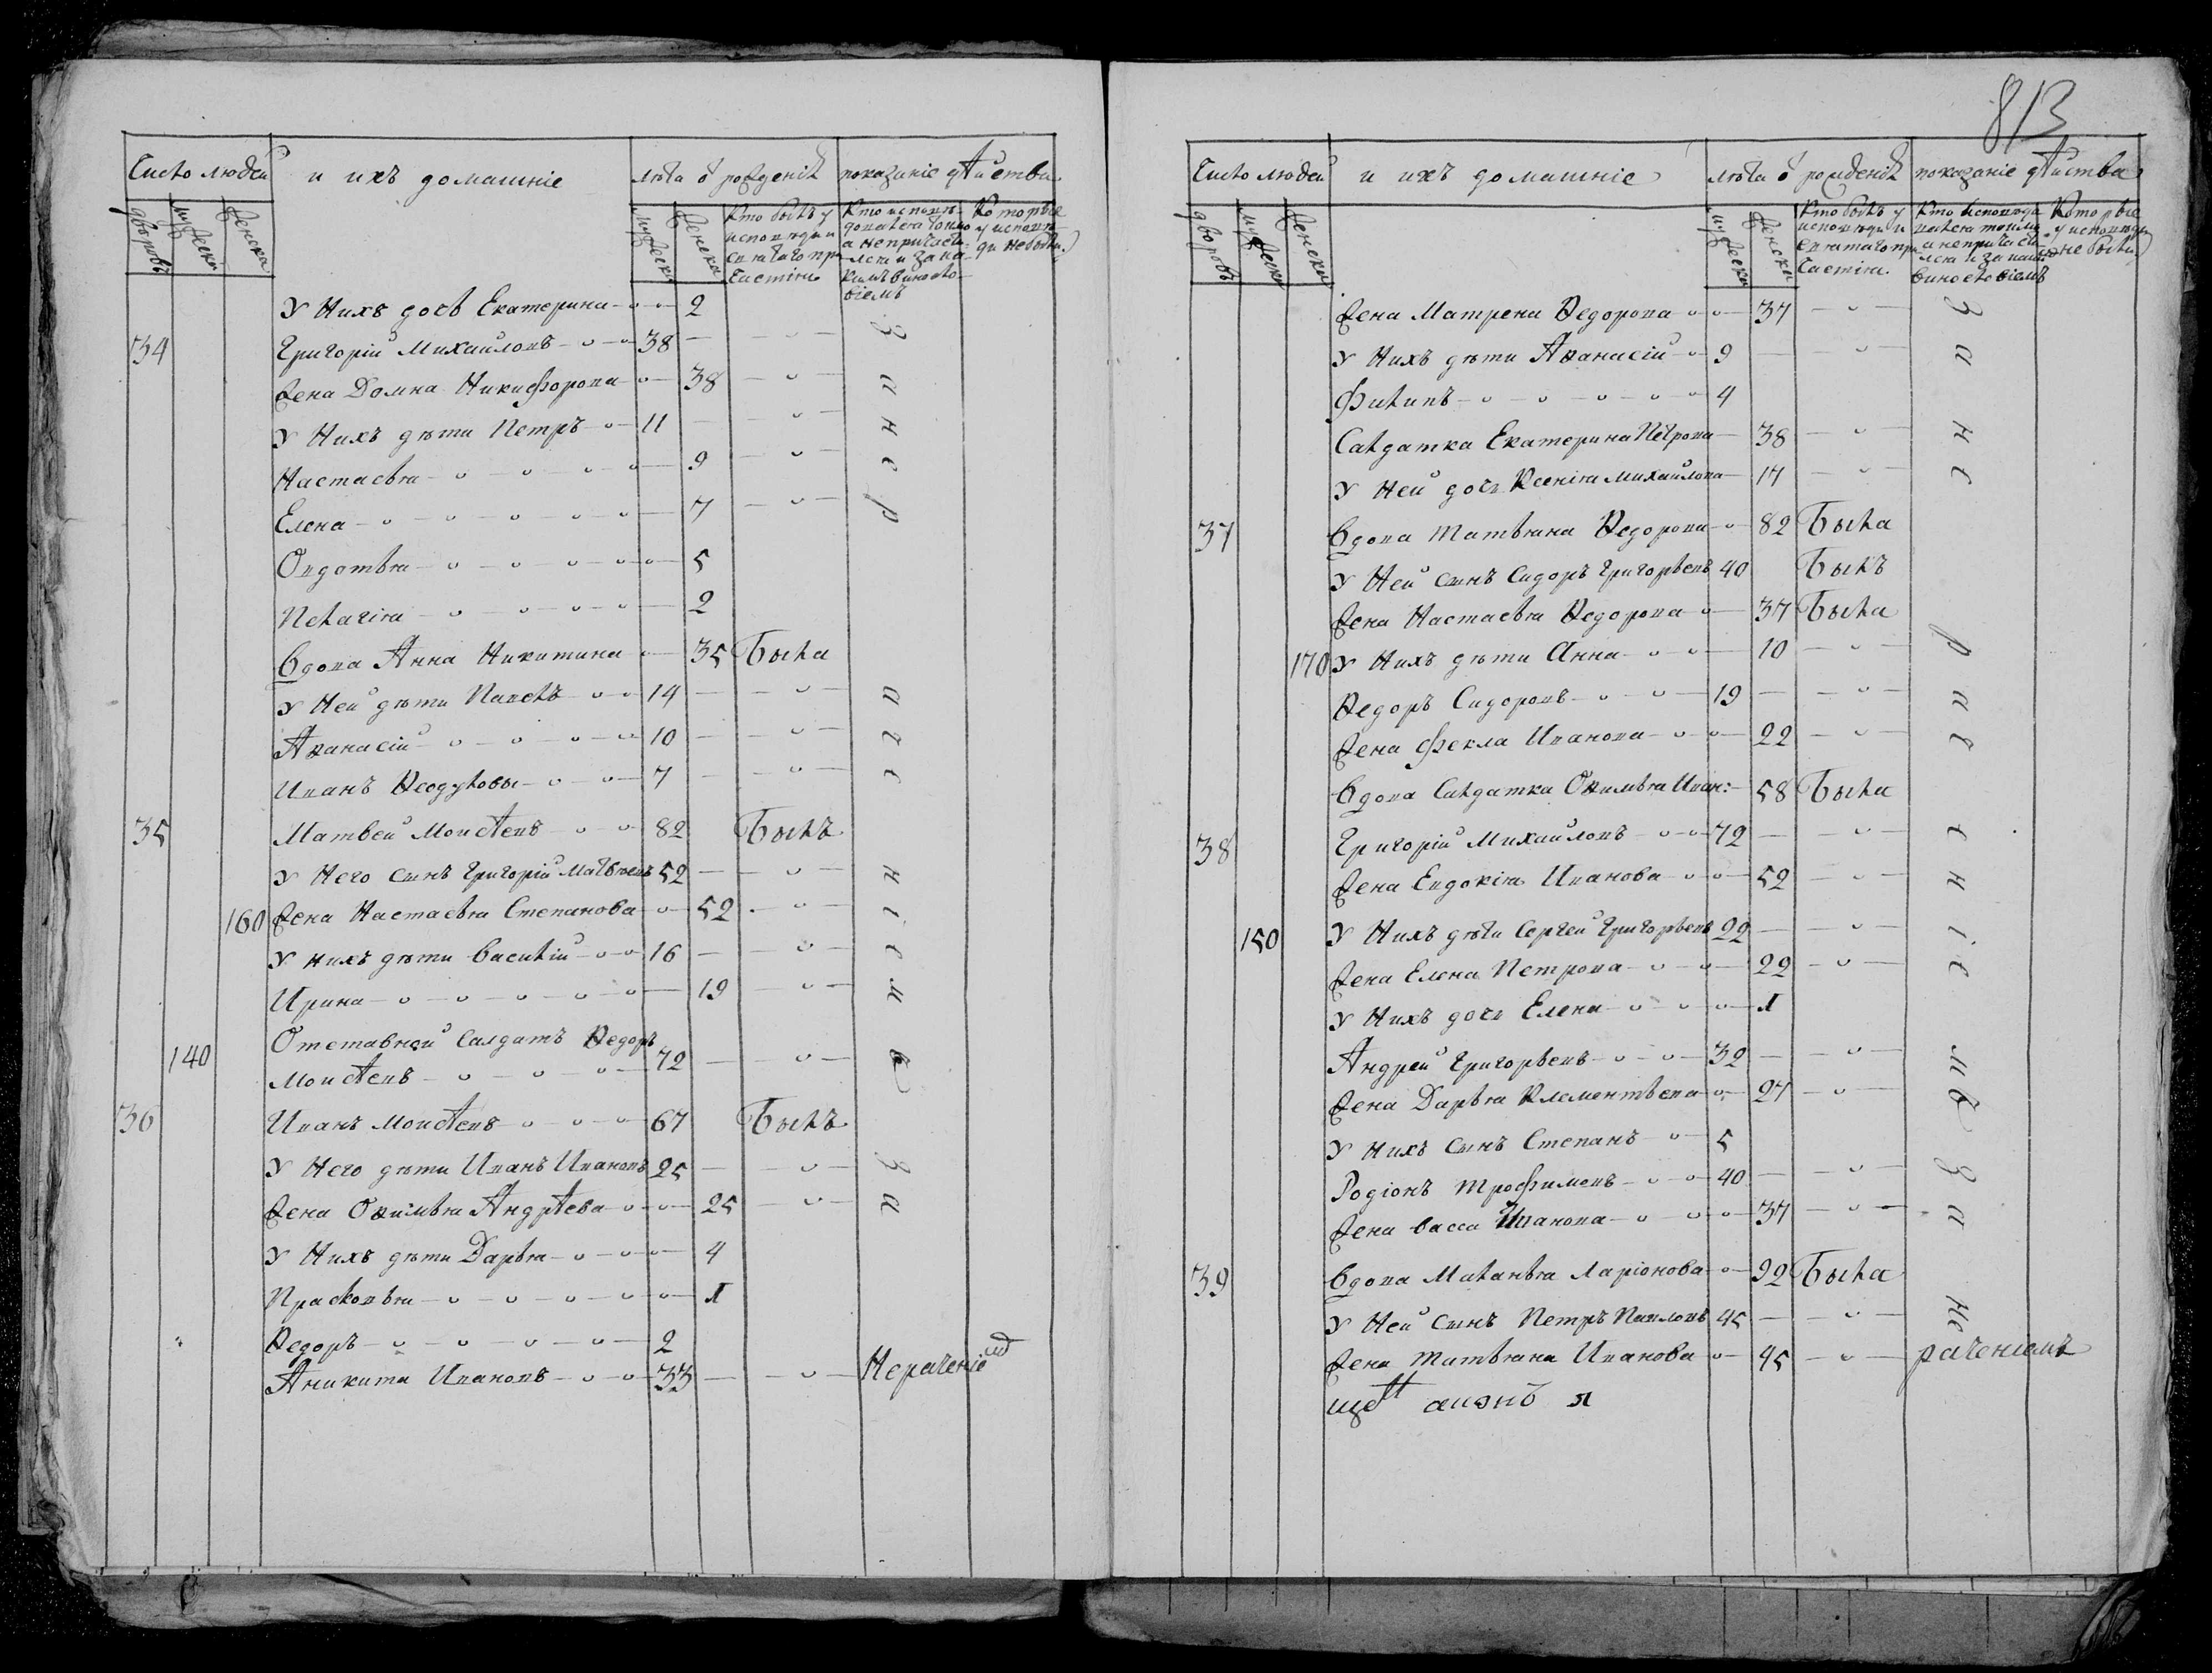 Число людей и ихъ домашніе лѣта ѿ рожденія показаніе дѣйства
дворовъ мужеска женска мужеска женска Кто былъ у исповѣди и святаго причастія Кто исповѣдовался токмо а не причастился и за какимъ винословіемъ Которые у исповѣди не были
У Нихъ дочь Екатерина 2
34 Григорій Михайловъ 38
Жена Домна Никифорова 38
У Нихъ дѣти Петръ 11
Настасья 9
Елена 7
Овдотья 5
Пелагія 2
Вдова Анна Никитина 35 Была
У Ней дѣти Павелъ 14
Аѳанасій 10
Иванъ Ѳедуловы 7
35 Матвей Моисѣевъ 82 Былъ
У Него сынъ Григорій Матвѣевъ 52
160 Жена Настасья Степанова 52
У нихъ дѣти Василій 16
Ирина 19
Отставной Салдатъ Ѳедоръ
140 Моисѣевъ 72
36 Иванъ Моисѣевъ 67 Былъ
У Него дѣти Иванъ Ивановъ 25
Жена Оѳимья Андрѣева 25
У Нихъ дѣти Дарья 4
Прасковья 1
Ѳедоръ 2
Аникита Ивановъ 33 Нераченіемъ
за нераченіемъ за
813
Число людей и ихъ домашніе лѣта ѿ рожденія показаніе дѣйства
дворовъ мужеска женска мужеска женска Кто былъ у исповѣди и святаго причастія Кто исповѣдовался токмо а не причастился и за какимъ винословіемъ Которые у исповѣди не были
Жена Матрена Ѳедорова 37
У Нихъ дѣти Аѳанасій 9
Филипъ 4
Салдатка Екатерина Петрова 38
У Ней дочь Ксенія Михайлова 17
37 Вдова Татьяна Ѳедорова 82 Была
У Ней сынъ Сидоръ Григорьевъ 40 Былъ
Жена Настасья Ѳедорова 37 Была
170 У Нихъ дѣти Анна 10
Ѳедоръ Сидоровъ 19
Жена Фекла Иванова 22
Вдова Салдатка Оѳимья Иван: 58 Была
38 Григорій Михайловъ 72
Жена Евдокія Иванова 52
150 У Нихъ дѣти Сергей Григорьевъ 22
Жена Елена Петрова 22
У Нихъ дочь Елена 1
Андрей Григорьевъ 32
Жена Дарья Клементьева 27
У нихъ сынъ Степанъ 5
Родіонъ Трофимовъ 40
Жена Васса Иванова 37
39 Вдова Маланья Ларіонова 92 Была
У Ней сынъ Петръ Павловъ 45
Жена Татьяна Иванова 45 раченіемъ
за нераченіемъ за не